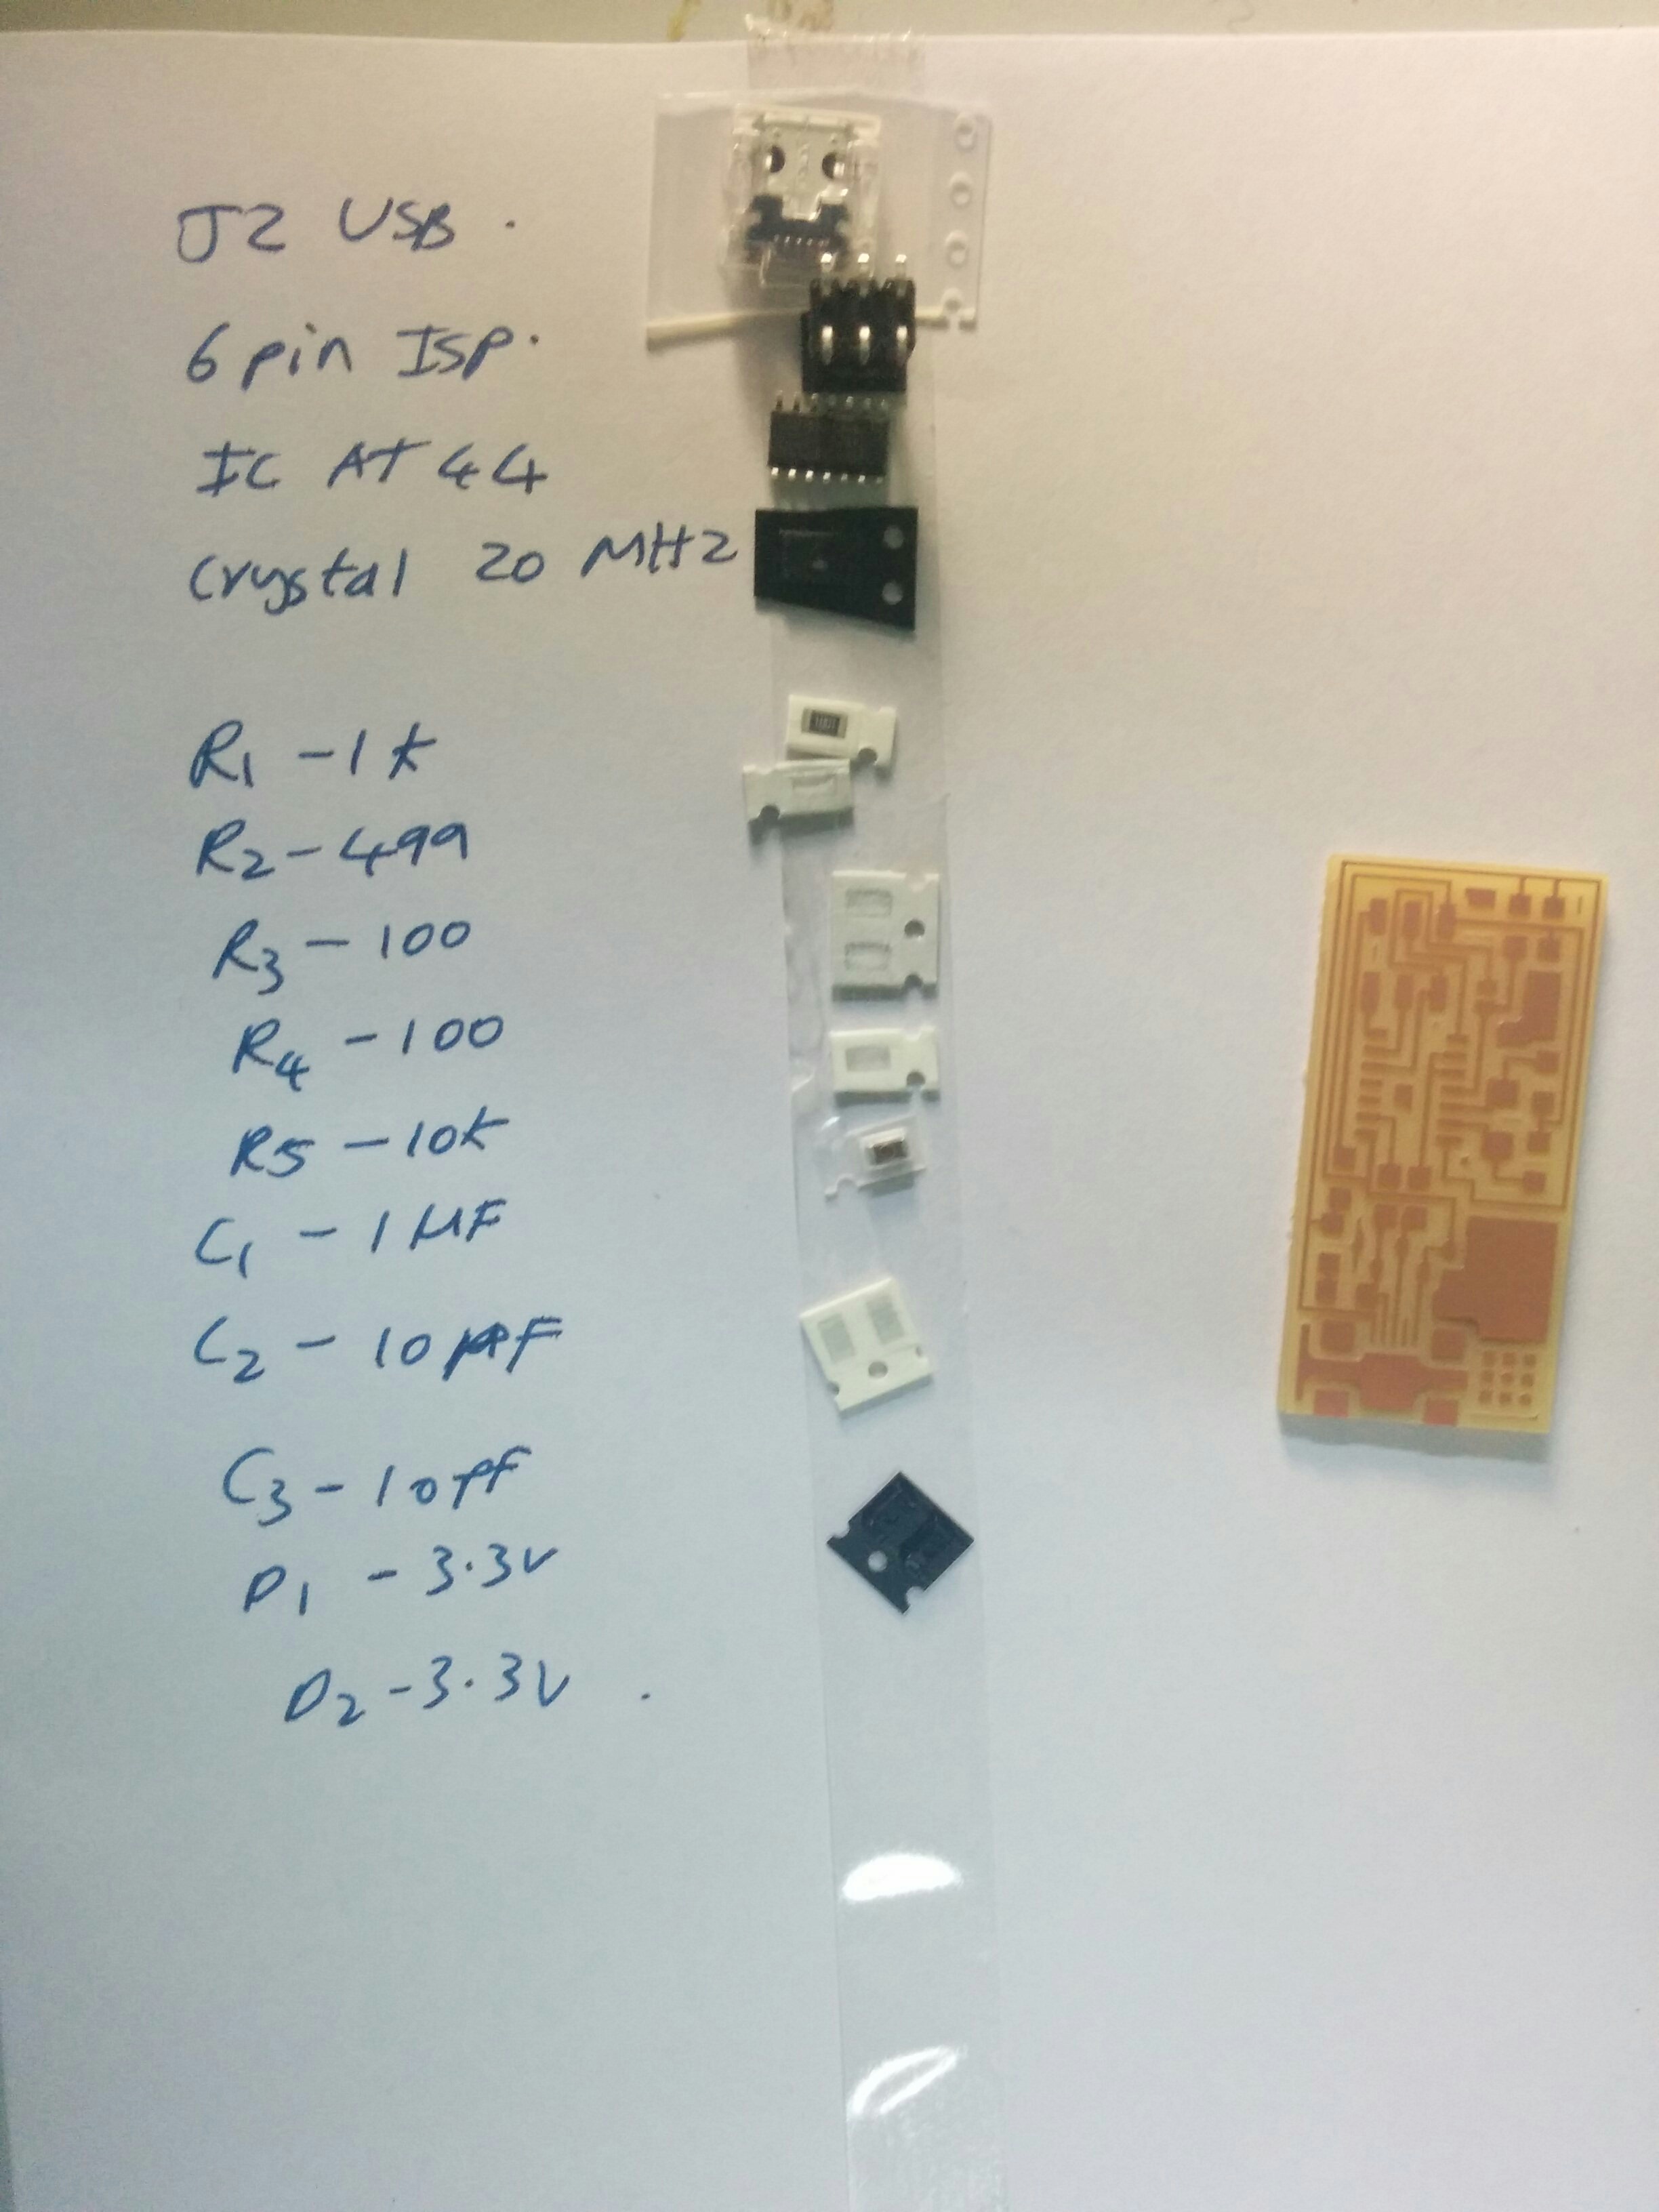 J2 USB.
6 pin ISP.
IC AT 44
Crystal 20 MHz
R1 - 1k
R2 - 499
R3 - 100
R4 - 100
R5 - 10k
C1 - 1 μF
C2 - 10 pF
C3 - 10 pF
D1 - 3.3V
D2 - 3.3V.